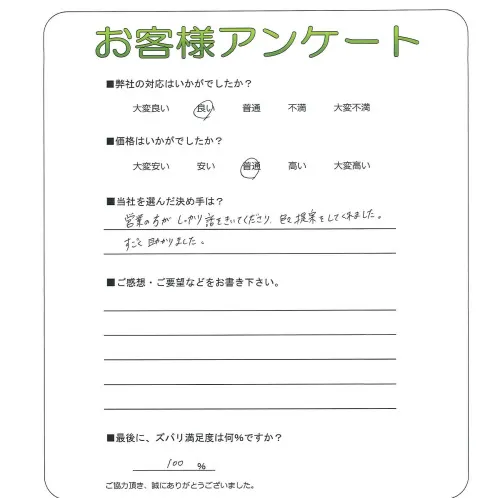 お客様アンケート
■弊社の対応はいかがでしたか？
大変良い 良い 普通 不満 大変不満
■価格はいかがでしたか？
大変安い 安い 普通 高い 大変高い
■当社を選んだ決め手は？
営業の方が しっかり話をきいてくださり、色々提案をしてくれました。
すごく助かりました。
■ご感想・ご要望などをお書き下さい。
■最後に、ズバリ満足度は何％ですか？
100 ％
ご協力頂き、誠にありがとうございました。